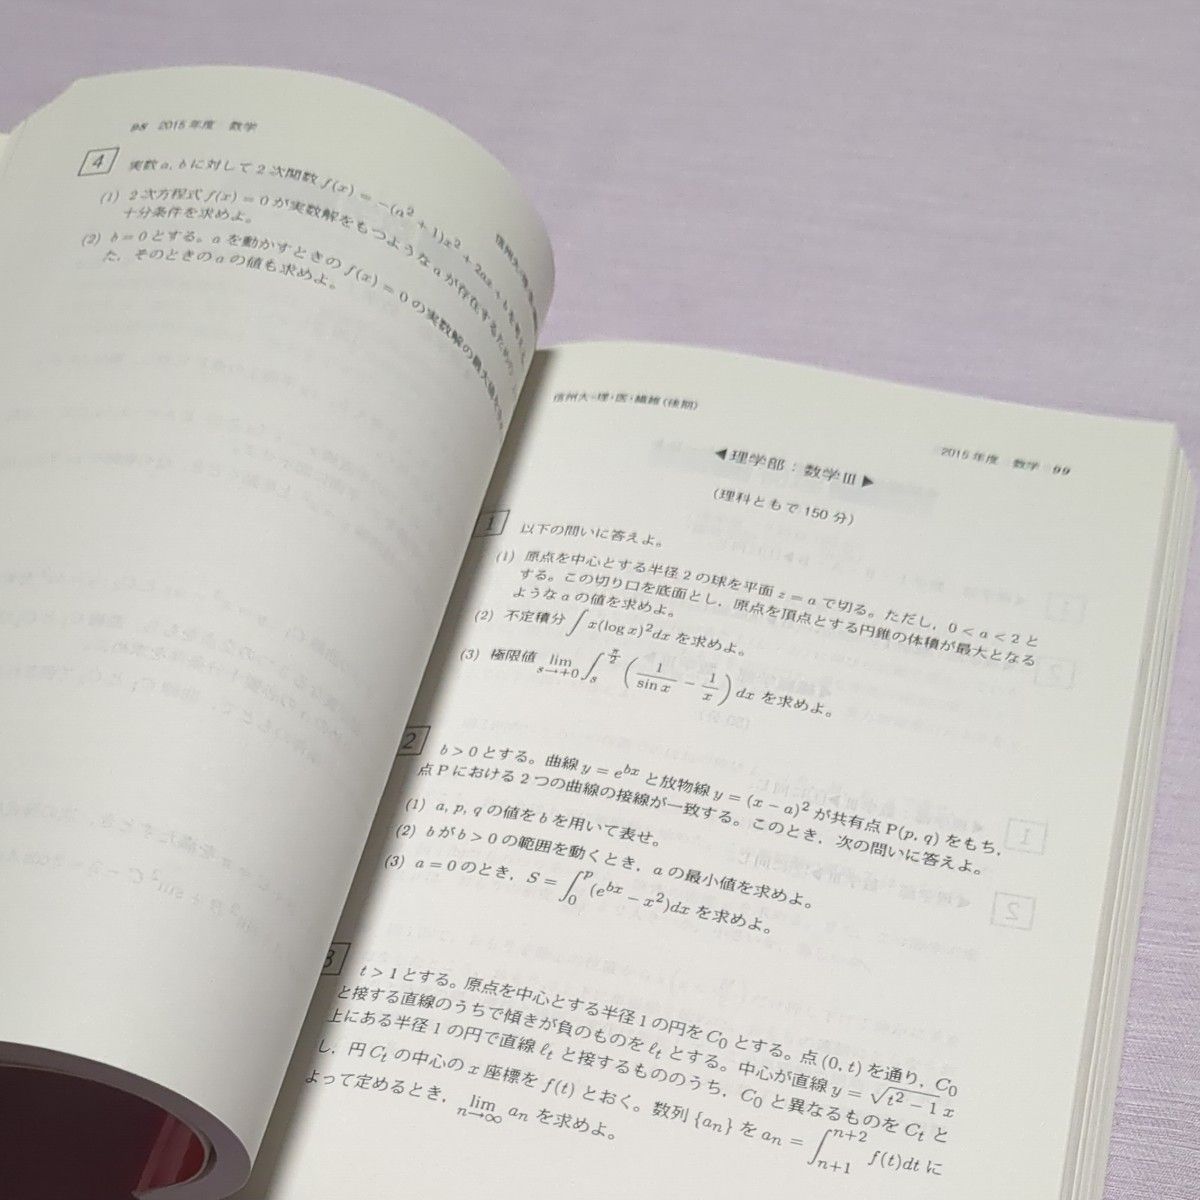 98 2015年度 数学
信州大-理・医・
4 実数a, bに対して2次関数f(x) = −(a²+1)x² + 2ax + b
(1) 2次方程式f(x) = 0が実数解をもつようなaが存在するための
十分条件を求めよ。
(2) b = 0とする。aを動かすときのf(x) = 0の実数解の最大値
た, そのときのaの値も求めよ。
信州大-理・医・繊維(後期)
2015年度 数学 99
◀理学部：数学III▶
(理科ともで150分)
1 以下の問いに答えよ。
(1) 原点を中心とする半径2の球を平面z = aで切る。ただし, 0 < a < 2と
する。この切り口を底面とし, 原点を頂点とする円錐の体積が最大となる
ようなaの値を求めよ。
(2) 不定積分 ∫x(log x)²dx を求めよ。
(3) 極限値 lim_{s→+0} ∫_s^{π/2} (1/sin x − 1/x) dx を求めよ。
2 b > 0とする。曲線y = e^{bx}と放物線y = (x − a)²が共有点P(p, q)をもち,
点Pにおける2つの曲線の接線が一致する。このとき, 次の問いに答えよ。
(1) a, p, qの値をbを用いて表せ。
(2) bがb > 0の範囲を動くとき, aの最小値を求めよ。
(3) a = 0のとき, S = ∫_0^p (e^{bx} − x²)dxを求めよ。
3 t > 1とする。原点を中心とする半径1の円をC₀とする。点(0, t)を通り, C₀
と接する直線のうちで傾きが負のものをℓ_tとする。中心が直線y = √(t² − 1) x
上にある半径1の円で直線ℓ_tと接するもののうち, C₀と異なるものをC_tと
し, 円C_tの中心のx座標をf(t)とおく。数列{a_n}をa_n = ∫_{n+1}^{n+2} f(t)dtに
よって定めるとき, lim_{n→∞} a_nを求めよ。